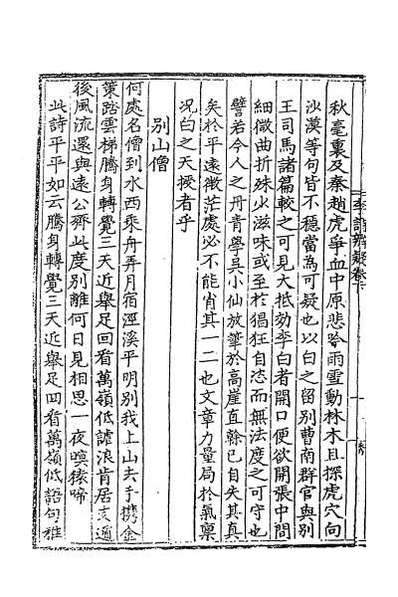 李詩辨疑卷下
秋毫裏及秦趙虎爭血中原悲吟雨雪動林木且探虎穴向
沙漠等句皆不穩當為可疑也以白之留別曹南群官與別
王司馬諸篇較之可見大抵効李白者開口便欲開張中間
細微曲折殊少滋味或至於猖狂自恣而無法度之可守也
譬若今人之丹青學吳小仙放筆於高崖直榦已自失其真
矣於平遠微茫處必不能肖其一二也文章力量局於氣稟
况白之天授者乎
別山僧
何處名僧到水西乘舟弄月宿涇溪平明別我上山去手携金
策踏雲梯騰身轉覺三天近舉足回看萬嶺低謔浪肯居支遁
後風流還與遠公齊此度別離何日見相思一夜暝猿啼
此詩平平如云騰身轉覺三天近舉足回看萬嶺低語句雅